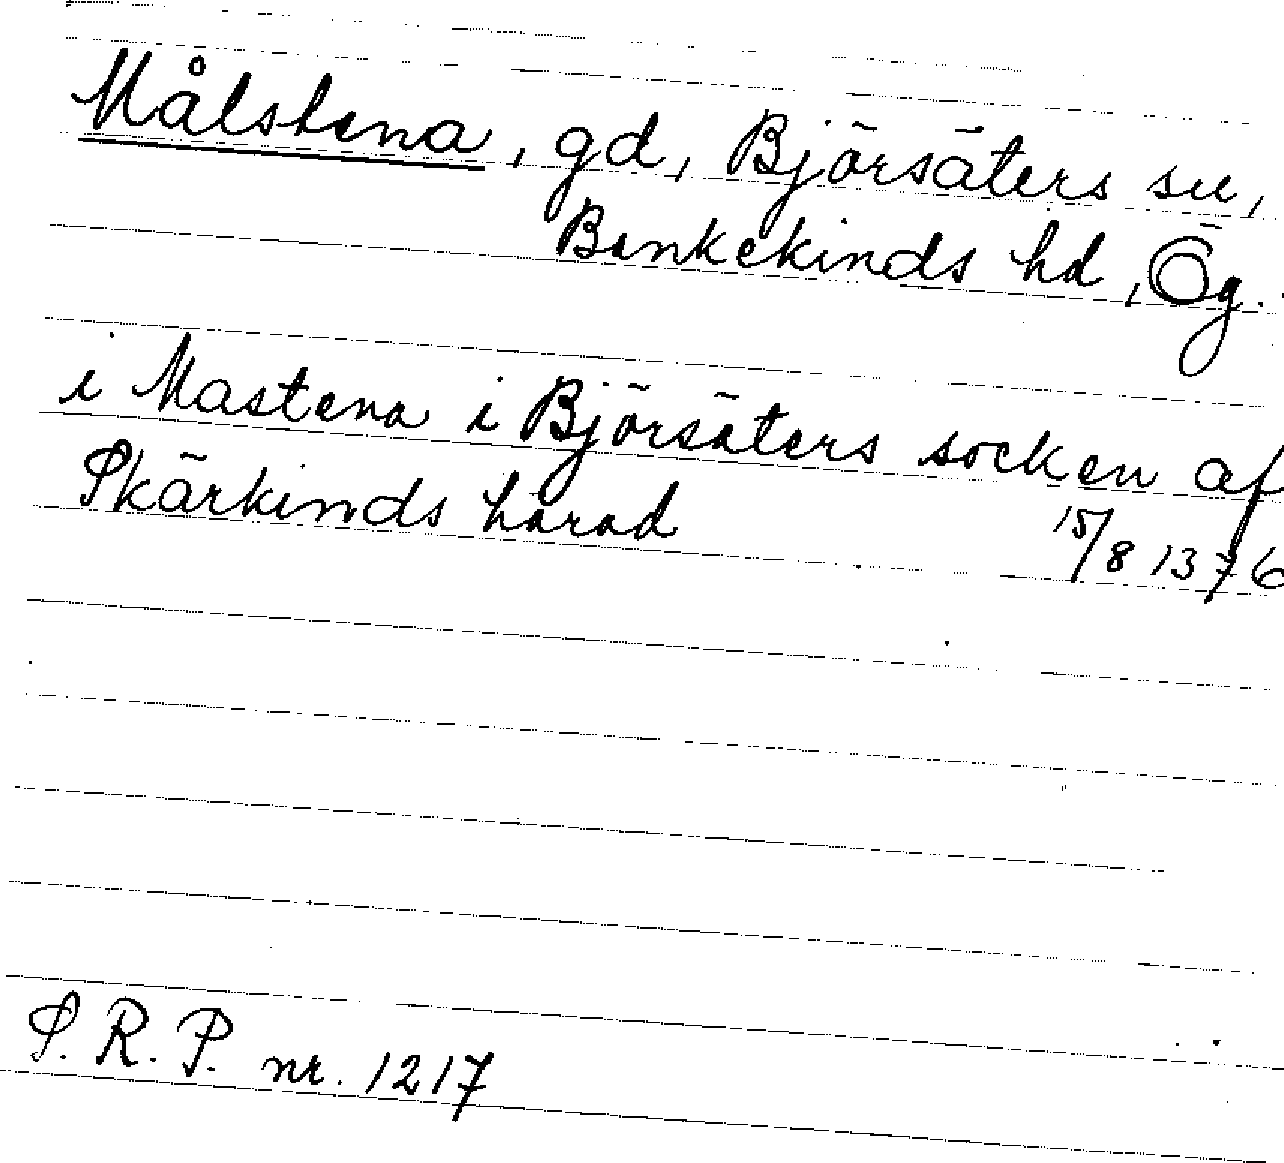 Målstena, gd, Björsäters sn,
Bankekinds hd, Ög.
i Mastena i Björsäters socken af
Skärkinds härad 15/8 1376
S. R. P. nr. 1217